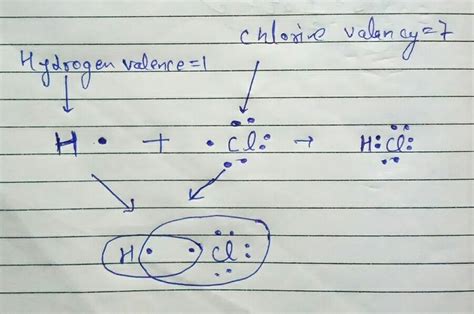 chlorine valency=7
Hydrogen valence=1
H• + •Cl: → H:Cl:
H • • Cl: